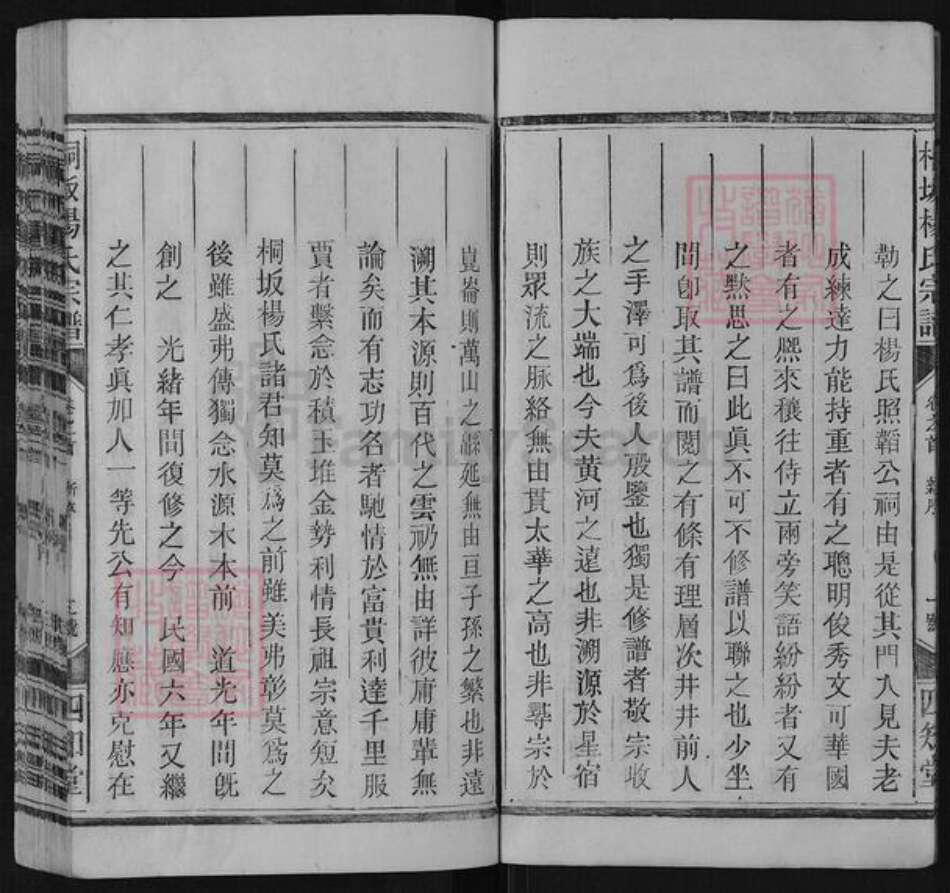 桐坂楊氏宗譜
卷之首
四知堂
勒之曰楊氏照韜公祠由是從其門入見夫老
成練達力能持重者有之聰明俊秀文可華國
者有之熈來穰往侍立兩旁笑語紛紛者又有
之默思之曰此眞不可不修譜以聯之也少坐
間卽取其譜而閱之有條有理層次井井前人
之手澤可爲後人殷鑒也獨是修譜者敬宗收
族之大端也今夫黃河之遠也非溯源於星宿
則眾流之脉絡無由貫太華之高也非尋宗於
崑崙則萬山之緜延無由亘子孫之繁也非遠
溯其本源則百代之雲礽無由詳彼庸庸輩無
論矣而有志功名者馳情於富貴利達千里服
賈者繫念於積玉堆金勢利情長祖宗意短矣
桐坂楊氏諸君知莫爲之前雖美弗彰莫爲之
後雖盛弗傳獨念水源木本前 道光年間旣
創之 光緒年間復修之今 民國六年又繼
之其仁孝眞加人一等先公有知應亦克慰在
桐坂楊氏宗譜
卷之首
四知堂
FamilySearch